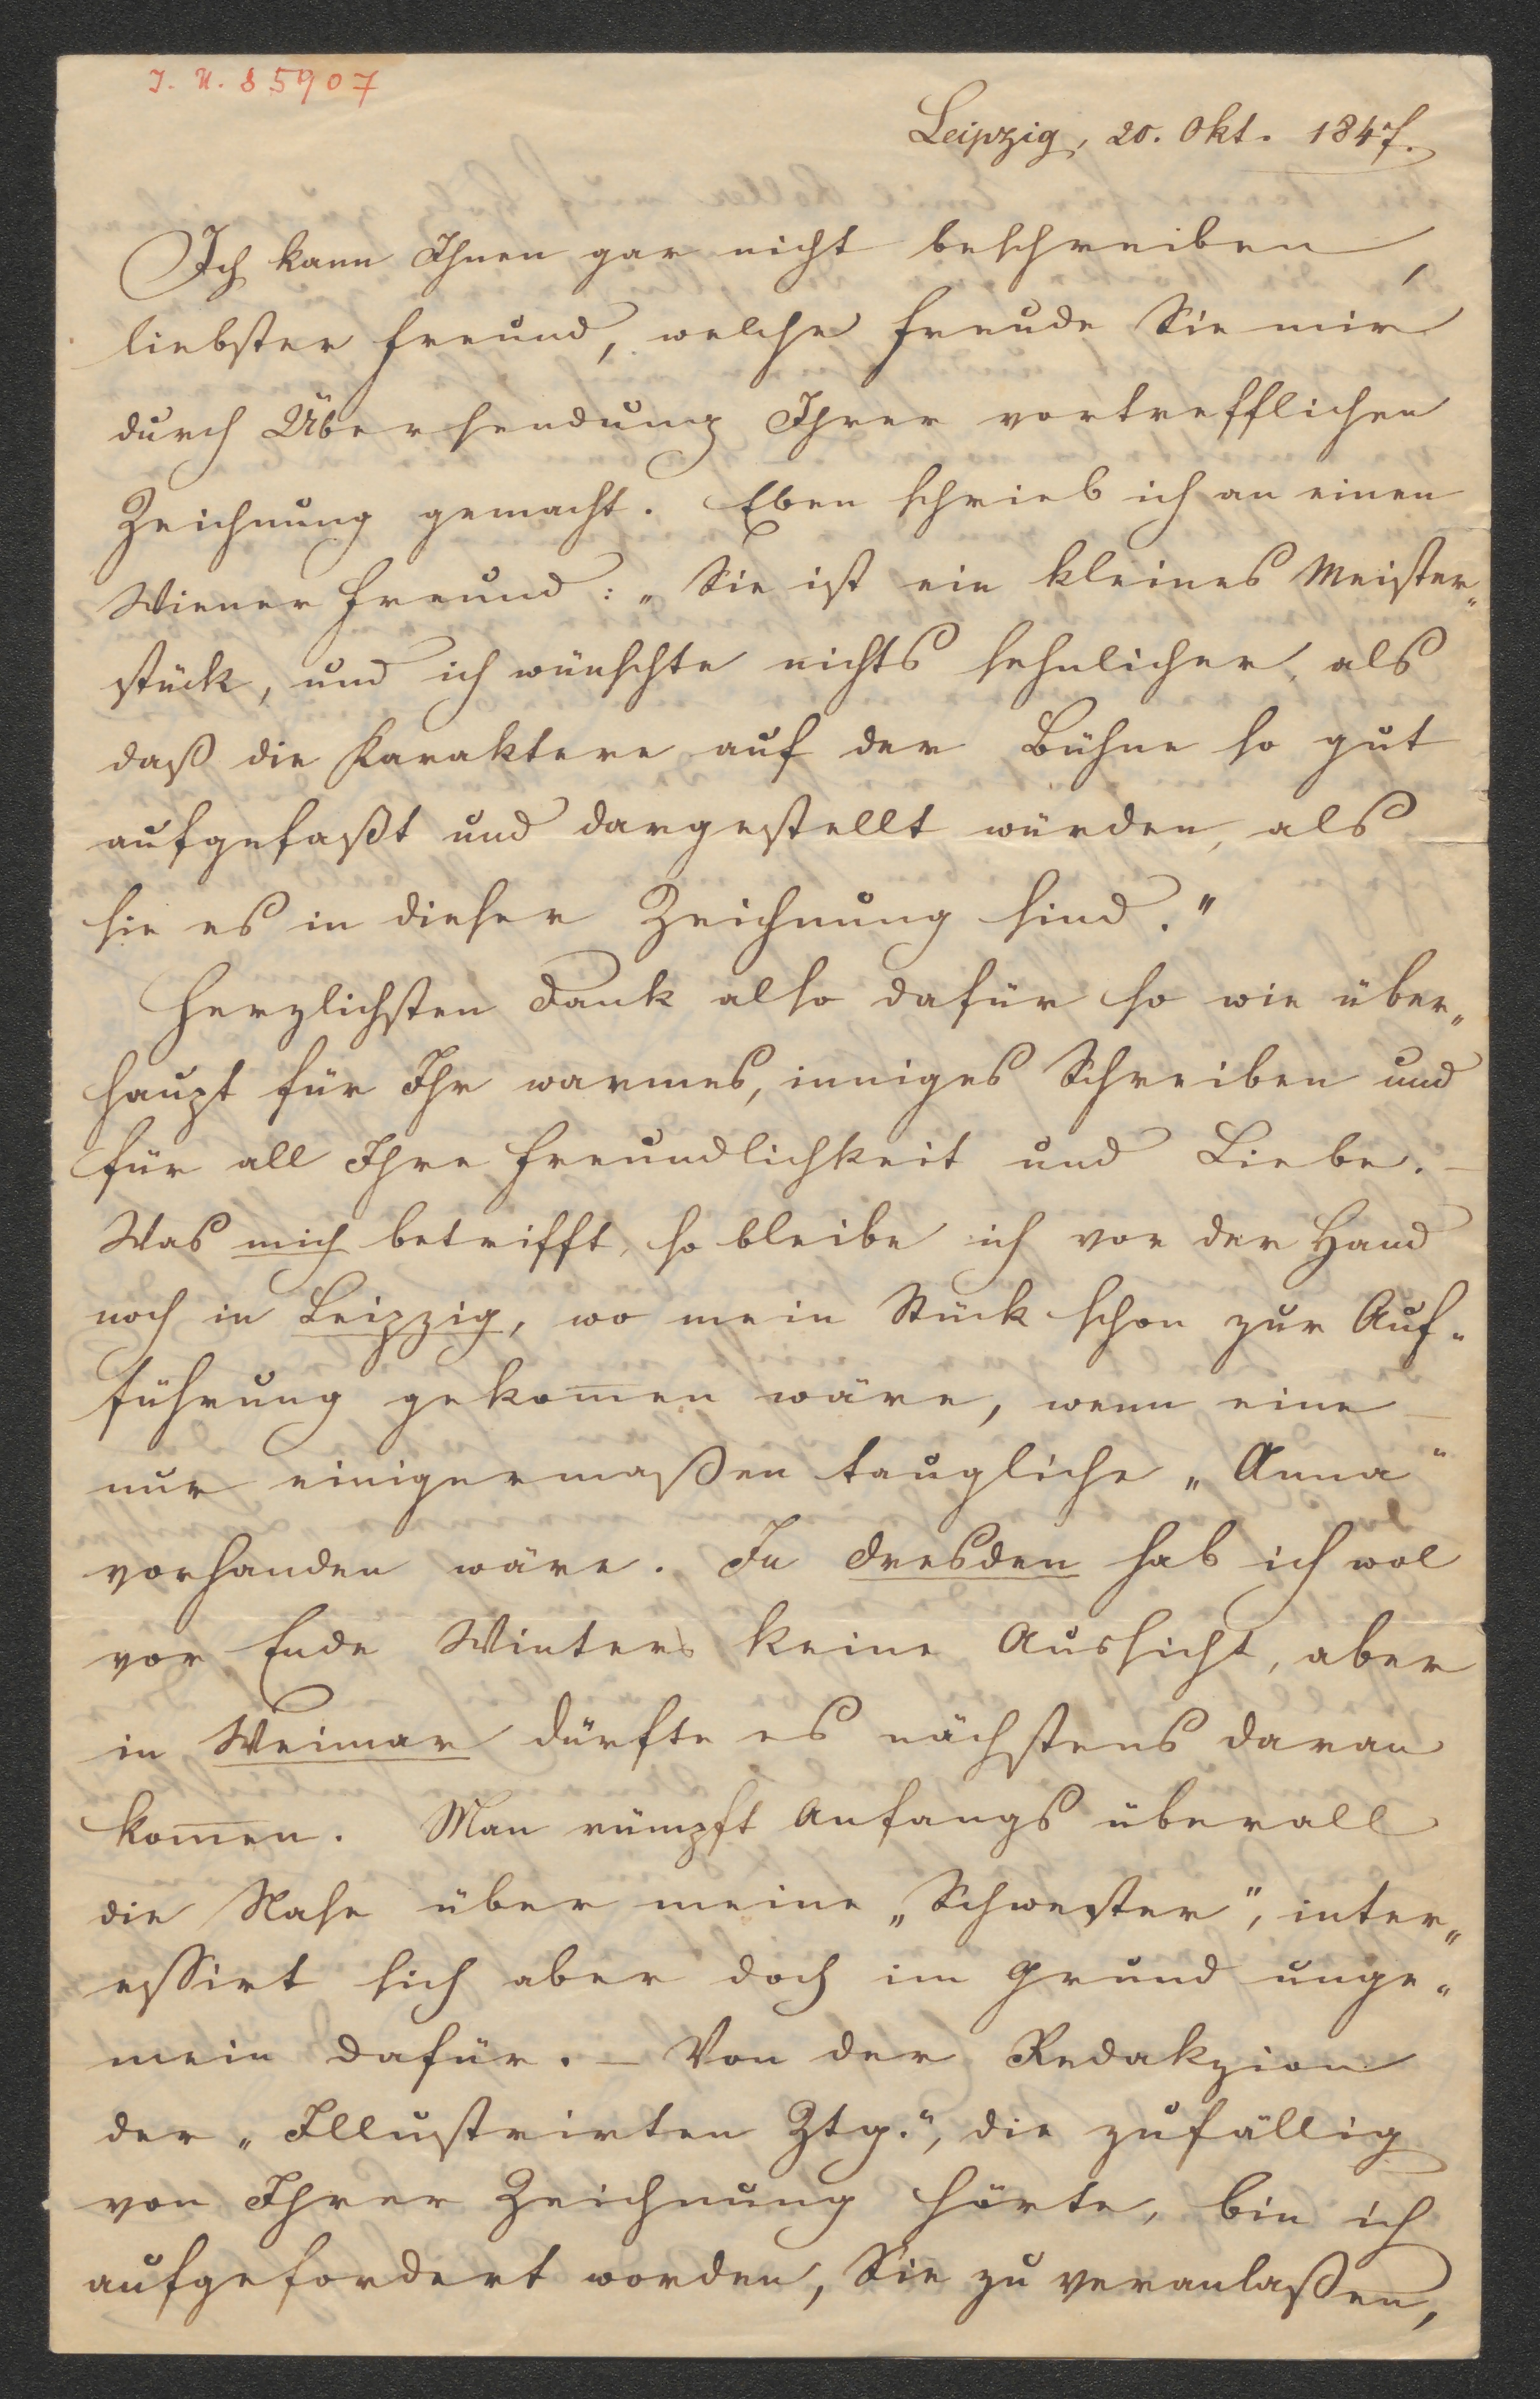 J. N. 85907
Leipzig, 20. Okt. 1847.
Ich kann Ihnen gar nicht beschreiben,
liebster Freund, welche Freude Sie mir
durch Übersendung Ihrer vortrefflichen
Zeichnung gemacht. Eben schrieb ich an einen
Wiener Freund: „Sie ist ein kleines Meister„
stück, und ich wünschte nichts sehnlicher, als
daß die Karaktere auf der Bühne so gut
aufgefaßt und dargestellt würden, als
sie es in dieser Zeichnung sind."
Herzlichsten Dank also dafür so wie über„
haupt für Ihr warmes, inniges Schreiben und
für all Ihre Freundlichkeit und Liebe. –
Was mich betrifft, so bleibe ich vor der Hand
noch in Leipzig, wo mein Stück schon zur Auf„
führung gekom̅en wäre, wenn eine
nur einigermaßen taugliche „Anna"
vorhanden wäre. In Dresden hab ich wol
vor Ende Winters keine Aussicht, aber
in Weimar dürfte es nächstens daran
kom̅en. Man rümpft Anfangs überall
die Nase über meine „Schwester", inter„
essirt sich aber doch im Grund unge„
mein dafür. – Von der Redakzion
der „Illustrirten Ztg.", die zufällig
von Ihrer Zeichnung hörte, bin ich
aufgefordert worden, Sie zu veranlaßen,